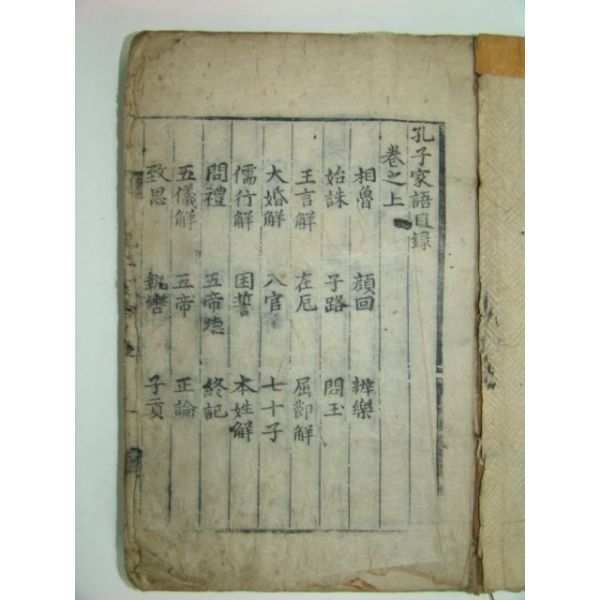 孔子家語目錄
卷之上
相魯 顔回 辨樂
始誅 子路 問玉
王言解 在厄 屈節解
大婚解 入官 七十子
儒行解 困誓 本姓解
問禮 五帝德 終記
五儀解 五帝 正論
致思 執轡 子貢